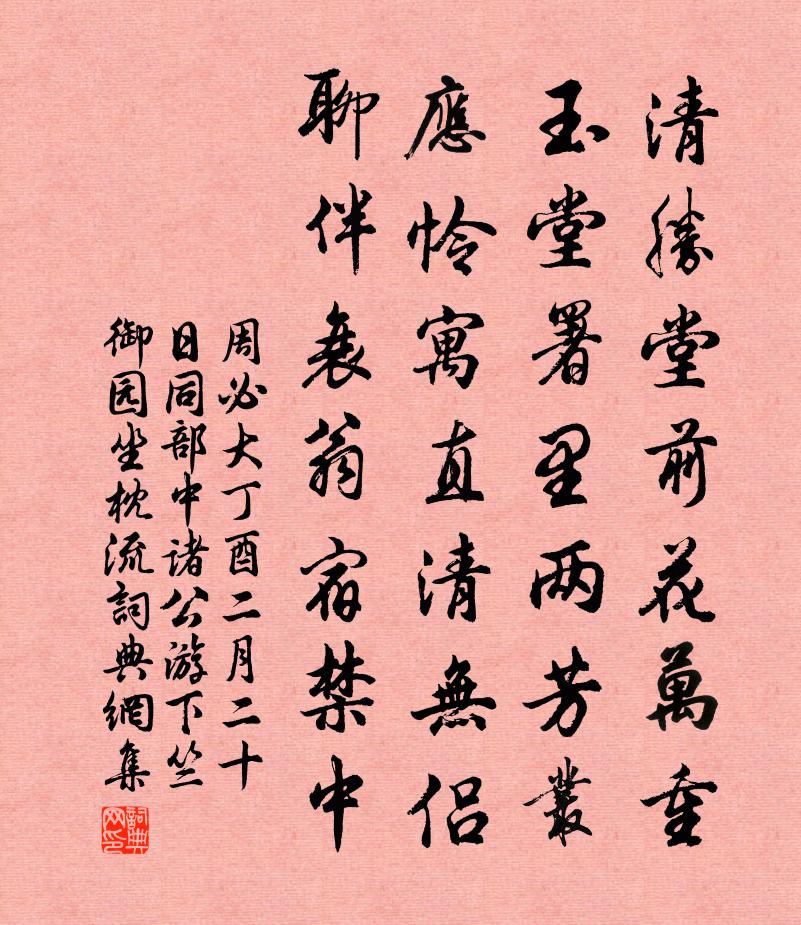 清勝堂前花萬重
玉堂署里两芳叢
應怜寓直清無侣
聊伴衰翁宿禁中
周必大丁酉二月二十
日同部中诸公游下竺
御园坐枕流詞典網集
詞典
网印